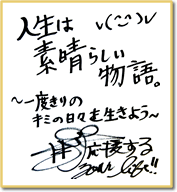 人生は
v(^ ^)v
素晴らしい
物語。
～一度きりの
キミの日々を生きよう～
応援する